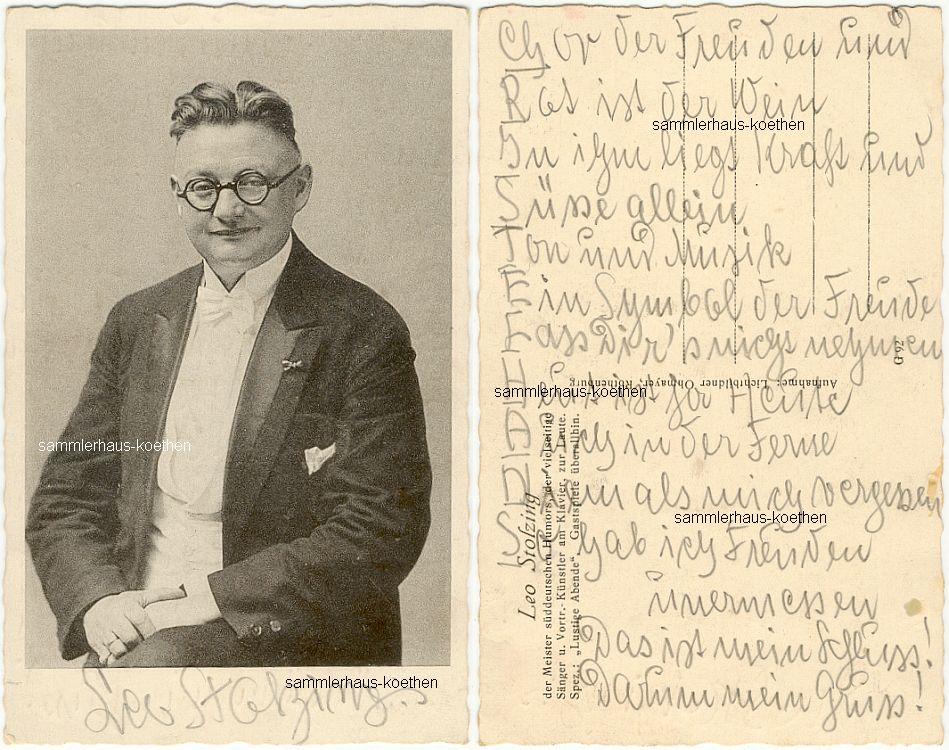 sammlerhaus-koethen
Leo Stolzing
sammlerhaus-koethen
Chor der Freuden und
Rot ist der Wein
sammlerhaus-koethen
In ihm liegt Kraft und
Süsse allein
Ton und Musik
ein Symbol der Freude
Lass Dir's nicht nehmen
G 92
Aufnahme: Lichtbildner Ohmayer, Rothenburg
sammlerhaus-koethen
ist für Heute
ich in der Ferne
als mich vergessen
sammlerhaus-koethen
gab ich Freuden
unermessen
Das ist mein Schluss!
Darum mein Gruss!
Leo Stolzing
der Meister süddeutschen Humors, der vielseitige
Sänger u. Vortr.-Künstler am Klavier, zur Laute.
Spez.: „Lustige Abende“. Gastspiele überallhin.